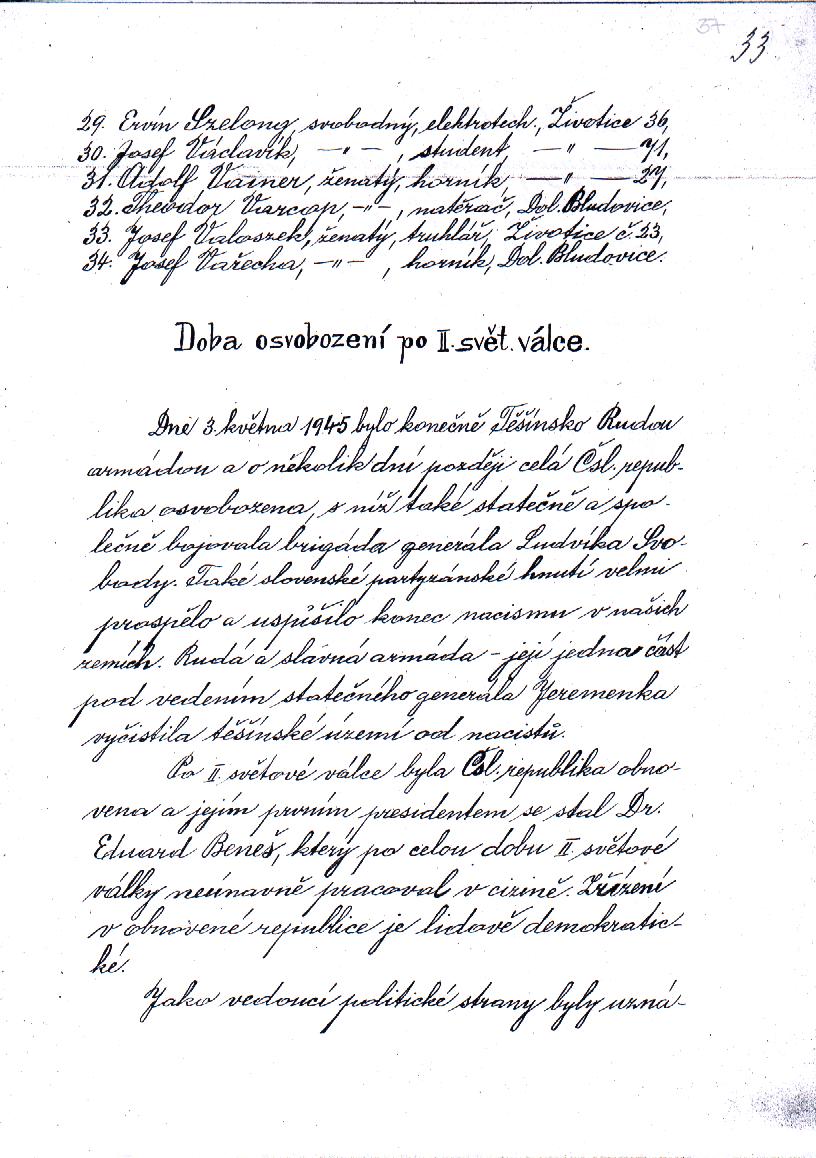 37
33
29. Ervín Szelong, svobodný, elektrotech., Životice 36,
30. Josef Václavík, —"— , student, —"— 71,
31. Adolf Vainer, ženatý, horník, —"— 27,
32. Theodor Varcop, —"— , natěrač, Dol. Bludovice,
33. Josef Valoszek, ženatý, truhlář, Životice č 23,
34. Josef Vařecha, —"— , horník, Dol. Bludovice.
Doba osvobození po II. svět. válce.
Dne 3. května 1945 bylo konečně Těšínsko Rudou
armádou a o několik dní později celá Čsl. repub-
lika osvobozena, s níž také statečně a spo-
lečně bojovala brigáda generála Ludvíka Svo-
body. Také slovenské partyzánské hnutí velmi
prospělo a uspíšilo konec nacismu v našich
zemích. Rudá a slavná armáda – její jedna část
pod vedením statečného generála Jeremenka
vyčistila těšínské území od nacistů.
Po II světové válce byla Čsl. republika obno-
vena a jejím prvním presidentem se stal Dr.
Eduard Beneš, který po celou dobu II světové
války neúnavně pracoval v cizině. Zřízení
v obnovené republice je lidově demokratic-
ké.
Jako vedoucí politické strany byly uzná-